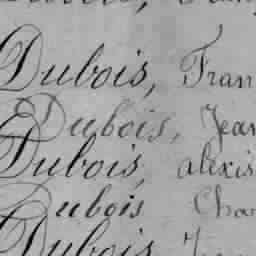 Dubois, Fran
Dubois, Jean
Dubois, alexis
Dubois Cha
Dubois